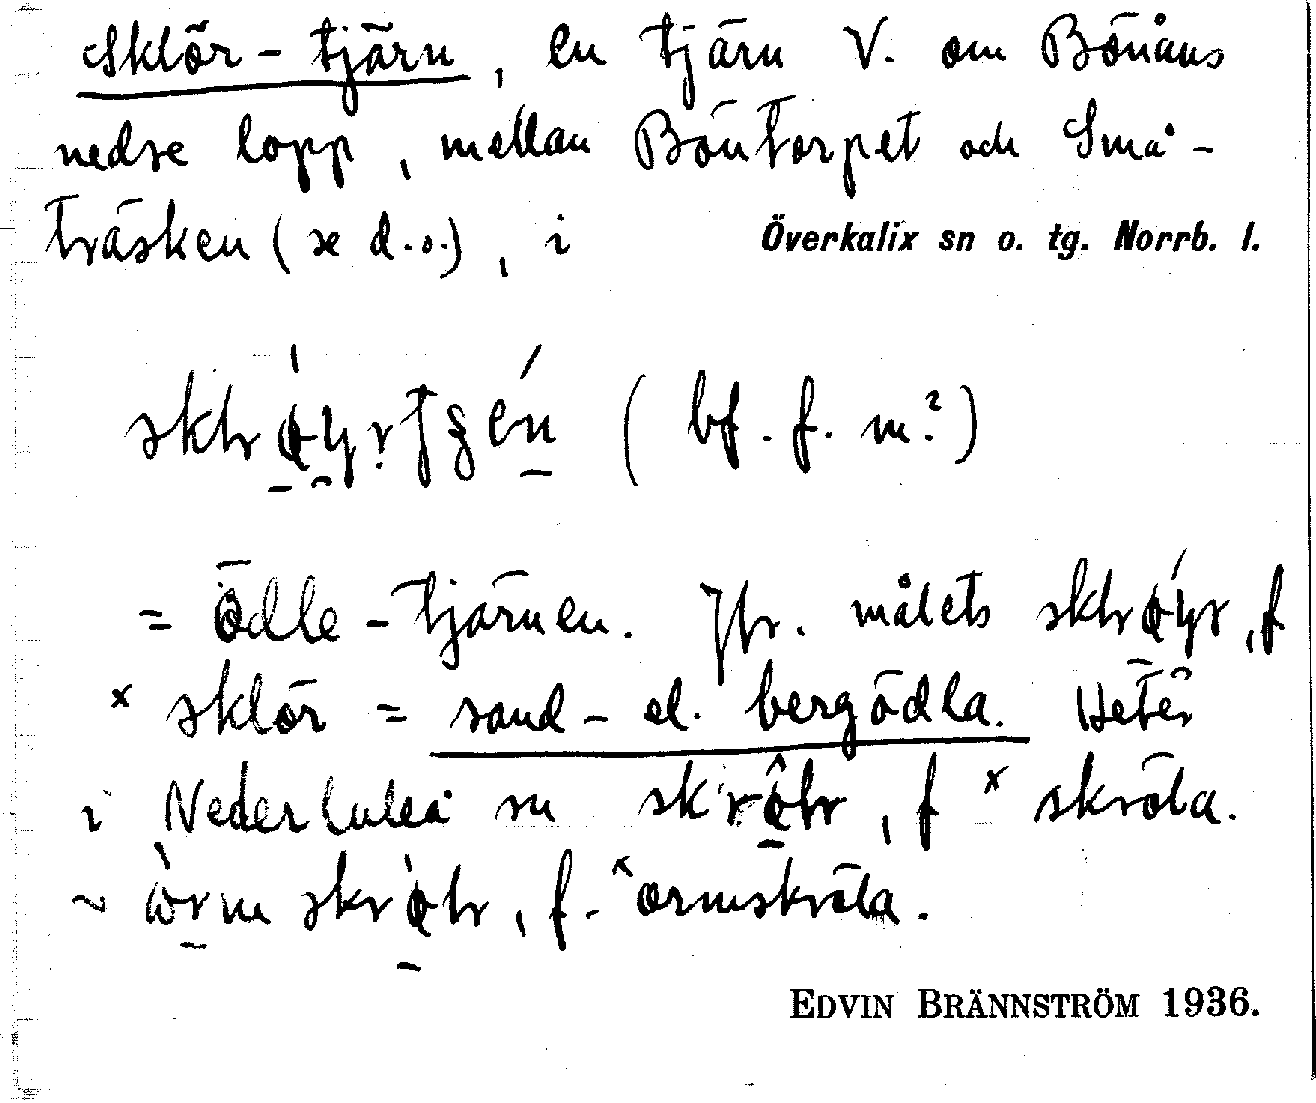 Sklör-tjärn, en tjärn V. om Bönåns
nedre lopp, mellan Böntorpet och Små-
träsken (se d.o.), i Överkalix sn o. tg. Norrb. l.
(bf. f. m.?)
= Ödle-tjärnen. Jfr. målets , f.
x sklör = sand- el. bergödla. Heter
i Nederluleå sn , f x skröla.
~ , f. x ormskröla.
EDVIN BRÄNNSTRÖM 1936.